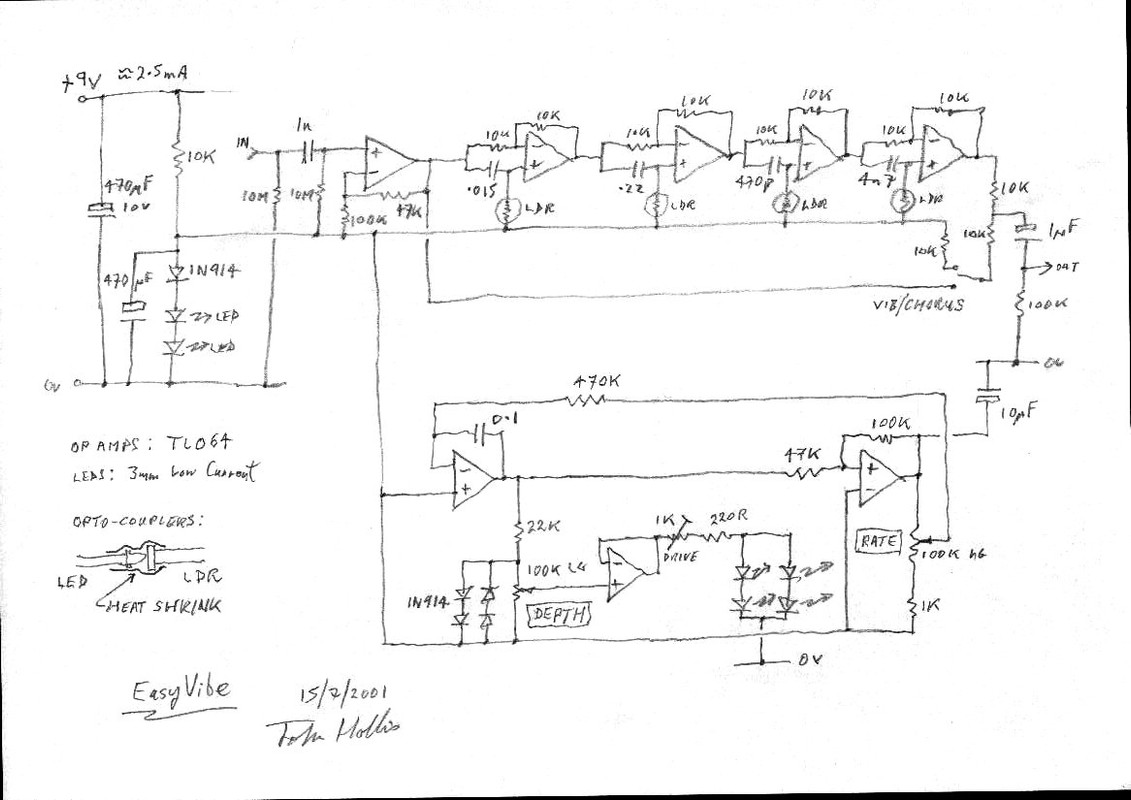 +9V ≈2.5mA
10K
470µF
10V
470 µF
1N914
LED
LED
0V
IN
1n
10M
10M
+
-
100K
47K
10K
10K
.015
-
+
LDR
10K
10K
.22
-
+
LDR
10K
10K
470p
-
+
LDR
10K
10K
4n7
-
+
LDR
10K
10K
10K
1µF
OUT
100K
VIB/CHORUS
0V
10µF
470K
0.1
-
+
47K
100K
+
-
OP AMPS: TL064
LEDS: 3mm Low Current
OPTO-COUPLERS:
LED
LDR
HEAT SHRINK
22K
1N914
100K LG
DEPTH
-
+
1K
DRIVE
220R
RATE
100K
1K
0V
EasyVibe
15/7/2001
John Hollis